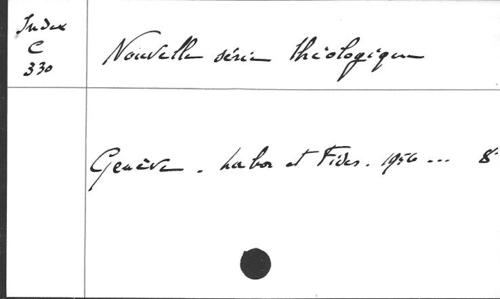 Index
C
330
Nouvelle série théologique
Genève. Labor et Fides. 1956 ... 8°